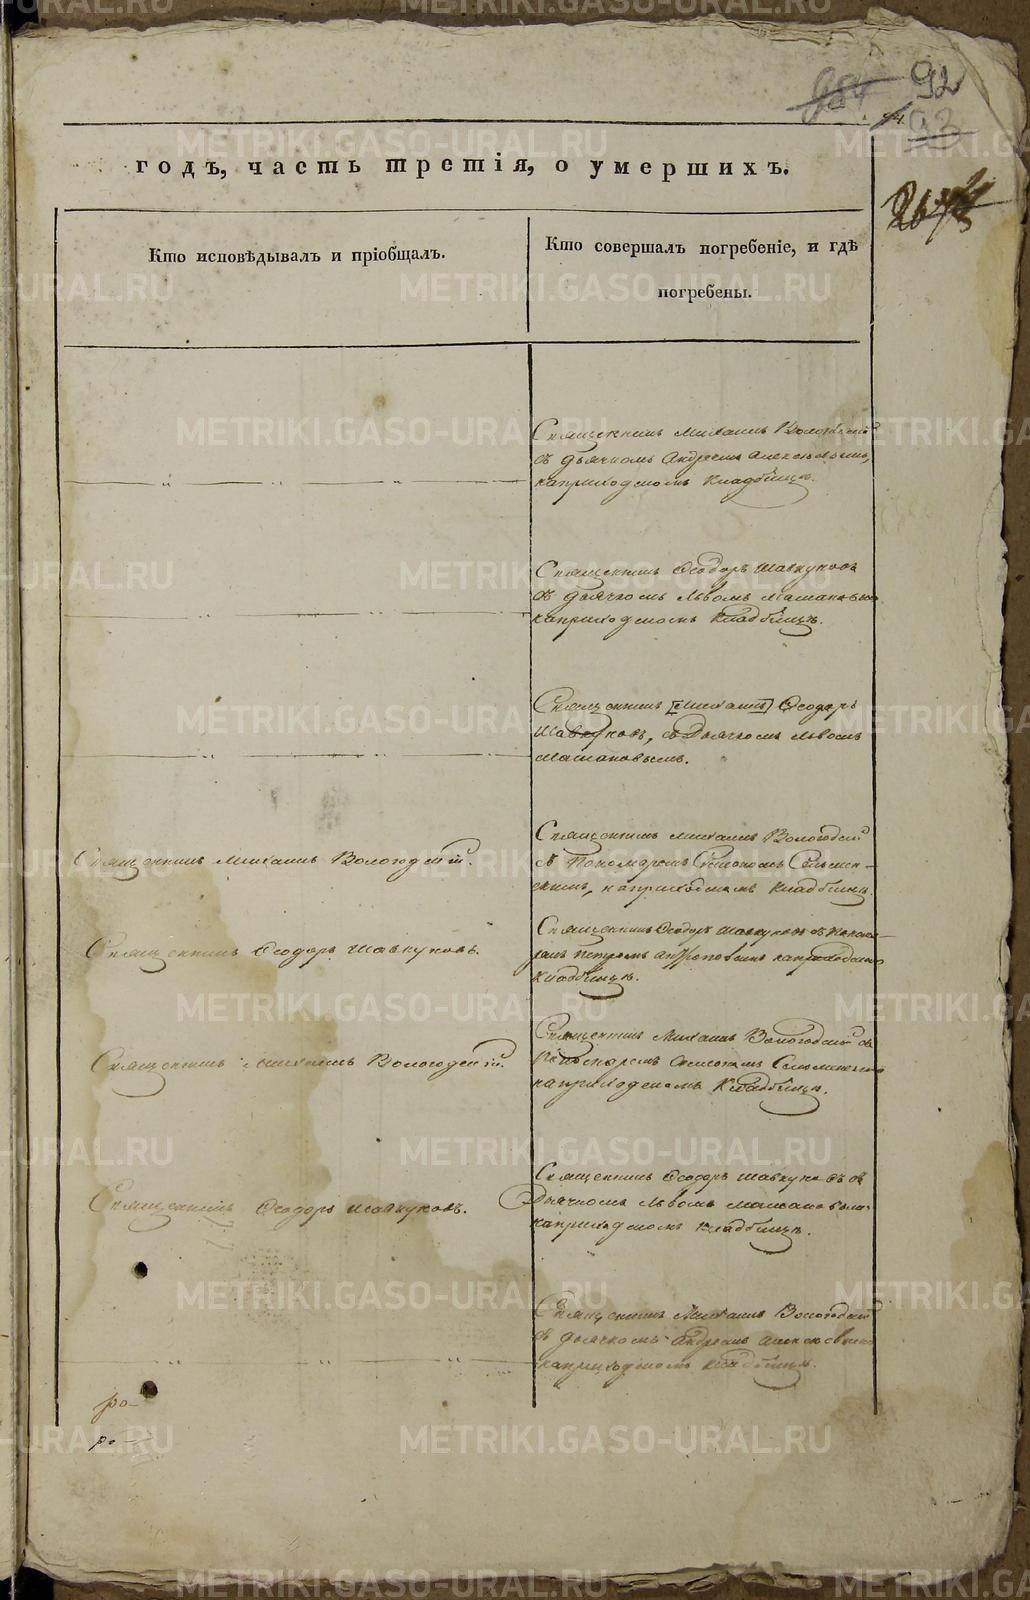 92
93
годъ, часть третія, о умершихъ.
Кто исповѣдывалъ и пріобщалъ.
Кто совершалъ погребеніе, и гдѣ
погребены.
Священникъ Михаилъ Вологодскій
съ дьячкомъ Андреемъ Алексѣевымъ,
на приходскомъ кладбищѣ.
Священникъ Ѳеодоръ Шавкуновъ
съ дьячкомъ Львомъ
на приходскомъ кладбищѣ.
Священникъ [Михаилъ] Ѳеодоръ
Шавкуновъ, съ дьячкомъ Львомъ
Священникъ Михаилъ Вологодскій.
Священникъ Михаилъ Вологодскій
съ Пономаремъ
на приходскомъ кладбищѣ.
Священникъ Ѳеодоръ Шавкуновъ.
Священникъ Ѳеодоръ Шавкуновъ съ Понома-
ремъ Петромъ на приходскомъ
кладбищѣ.
Священникъ Михаилъ Вологодскій.
Священникъ Михаилъ Вологодскій съ
на приходскомъ кладбищѣ.
Священникъ Ѳеодоръ Шавкуновъ.
Священникъ Ѳеодоръ Шавкуновъ съ
дьячкомъ Львомъ
на приходскомъ кладбищѣ.
Священникъ Михаилъ Вологодскій
съ дьячкомъ Андреемъ Алексѣевымъ
на приходскомъ кладбищѣ.
ро-
ро-
METRIKI.GASO-URAL.RU